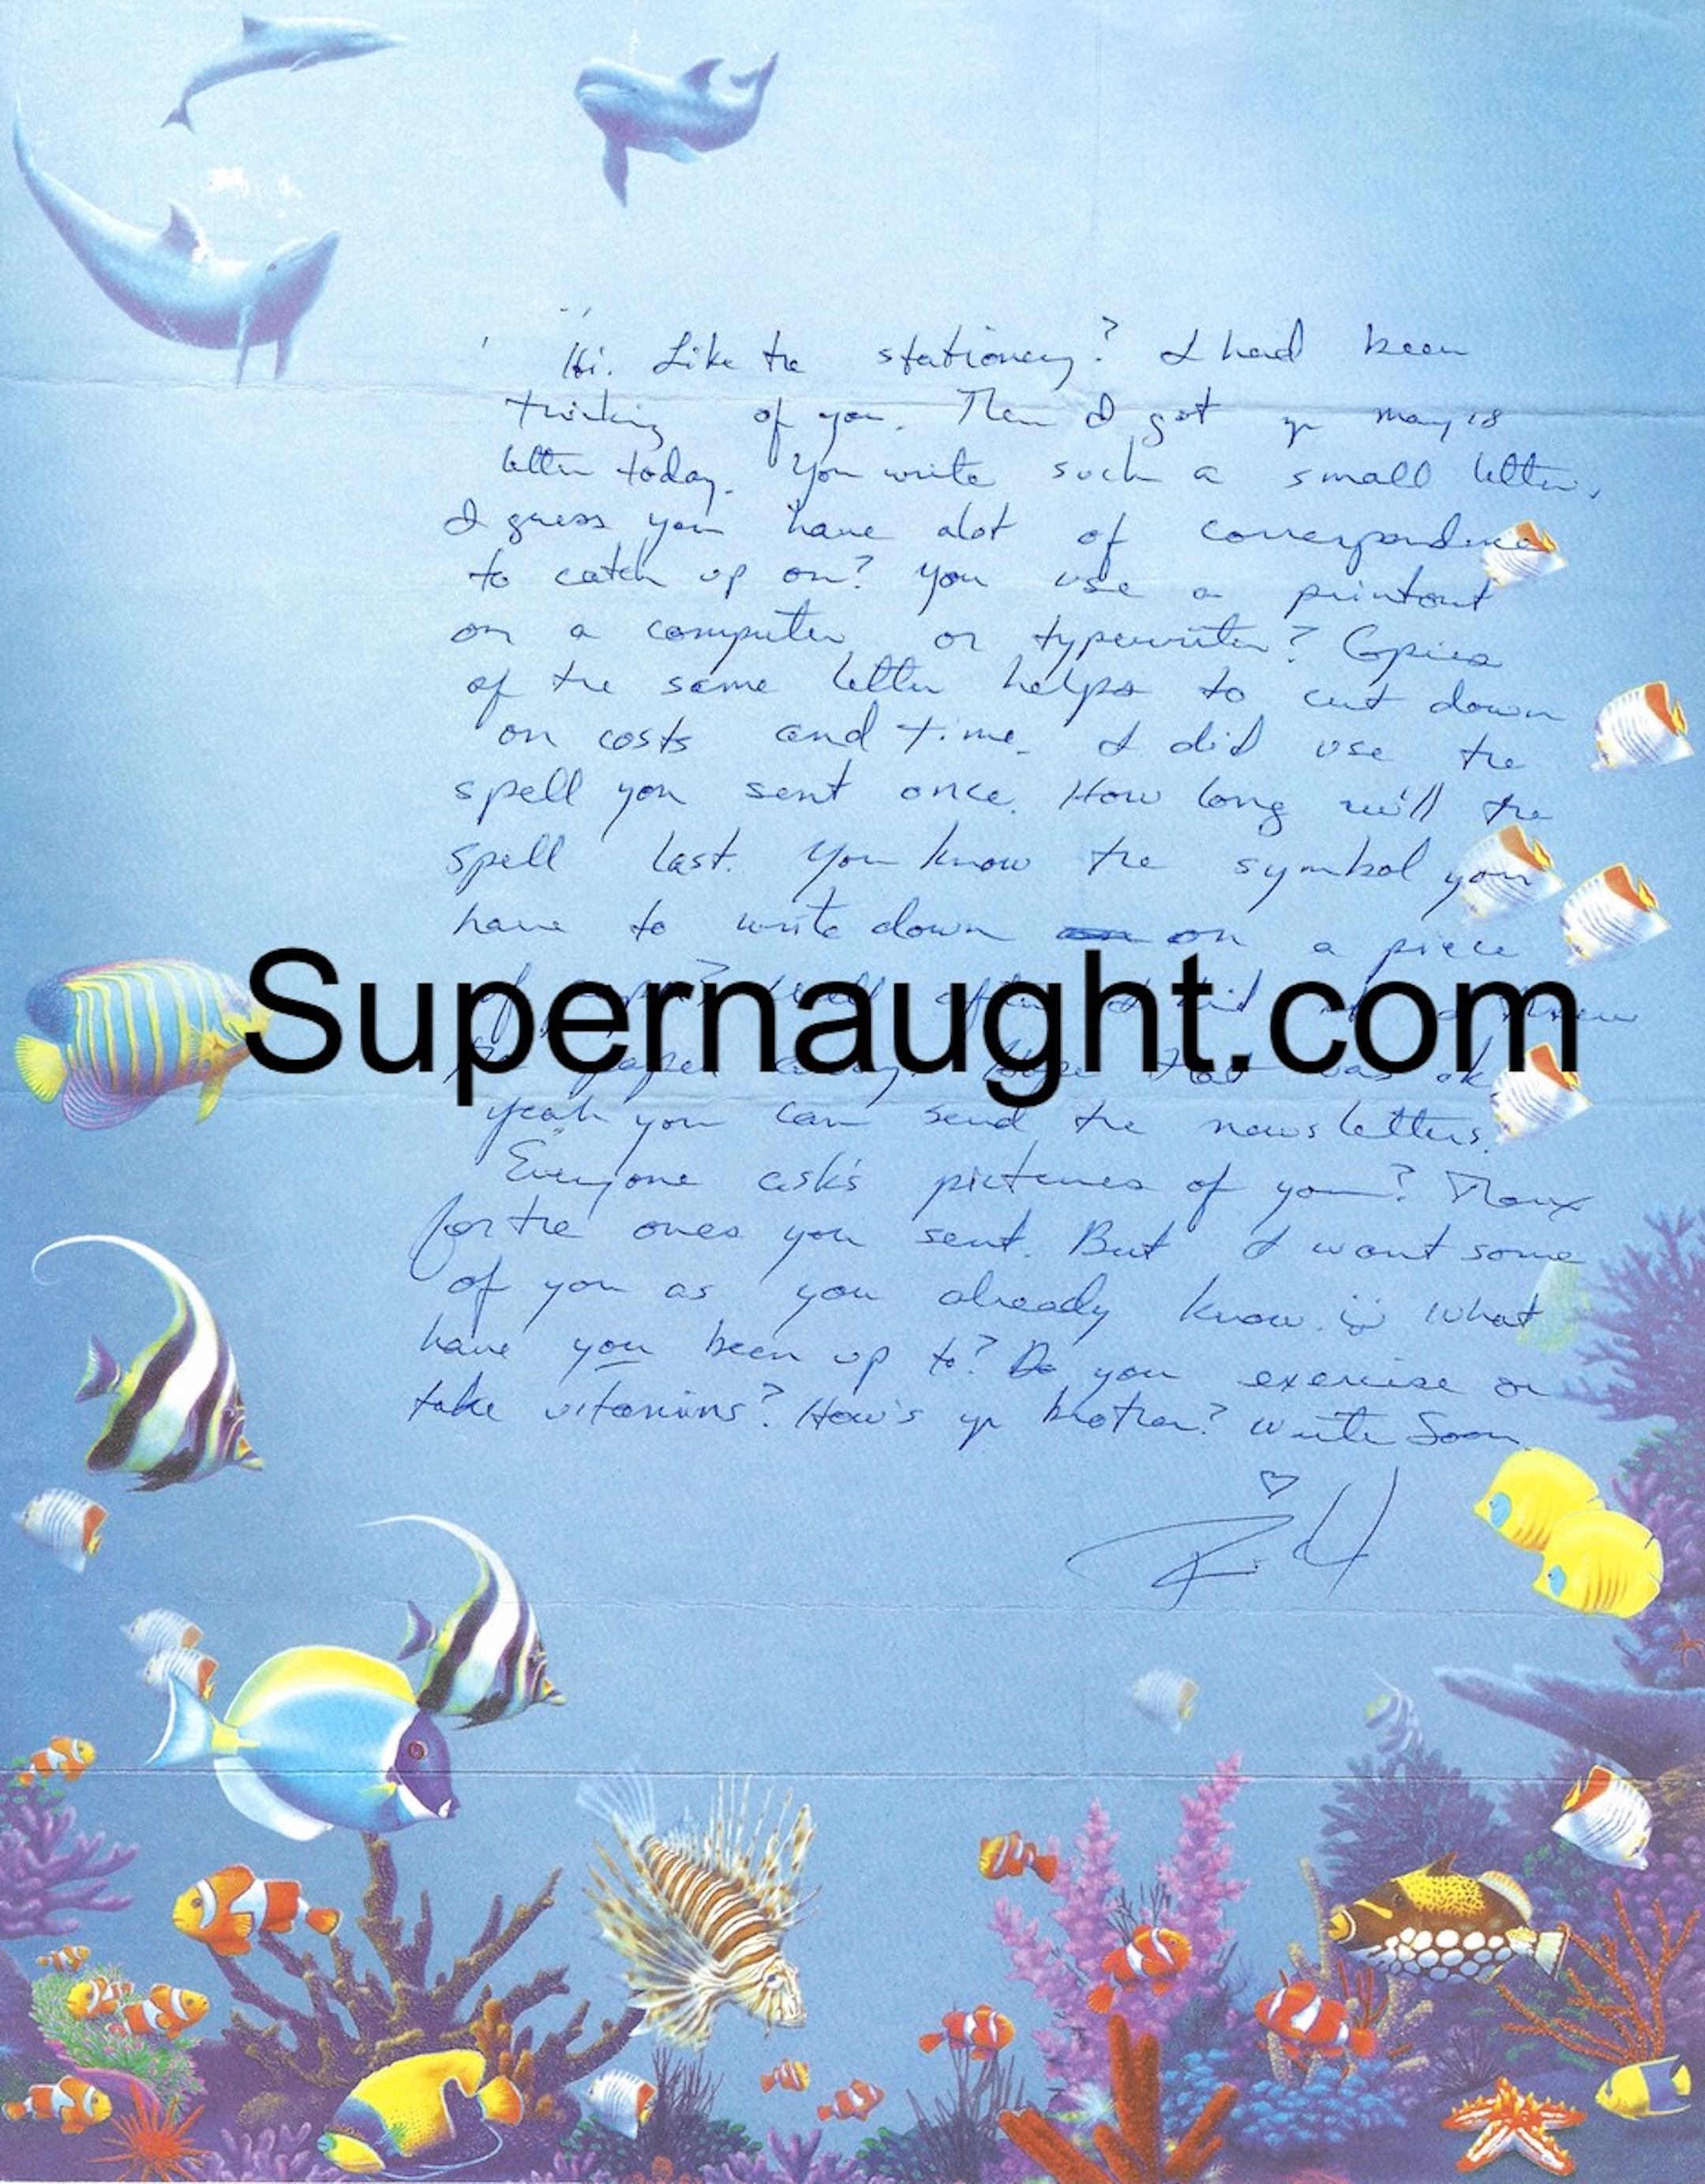 Hi. Like the stationery? I had been
thinking of you. Then I got yr may 18
letter today. You write such a small letter.
I guess you have alot of correspondence
to catch up on? You use a printout
on a computer or typewriter? Copies
of the same letter helps to cut down
on costs and time. I did use the
spell you sent once. How long will the
spell last. You know the symbol you
have to write down on a piece
of paper? Well after I did it I threw
Supernaught.com
the paper away. Hope that was ok
yeah you can send the news letters.
Everyone ask's pictures of you? Thanx
for the ones you sent. But I want some
of you as you already know. What
have you been up to? Do you exercise or
take vitamins? How's yr brother? Write Soon